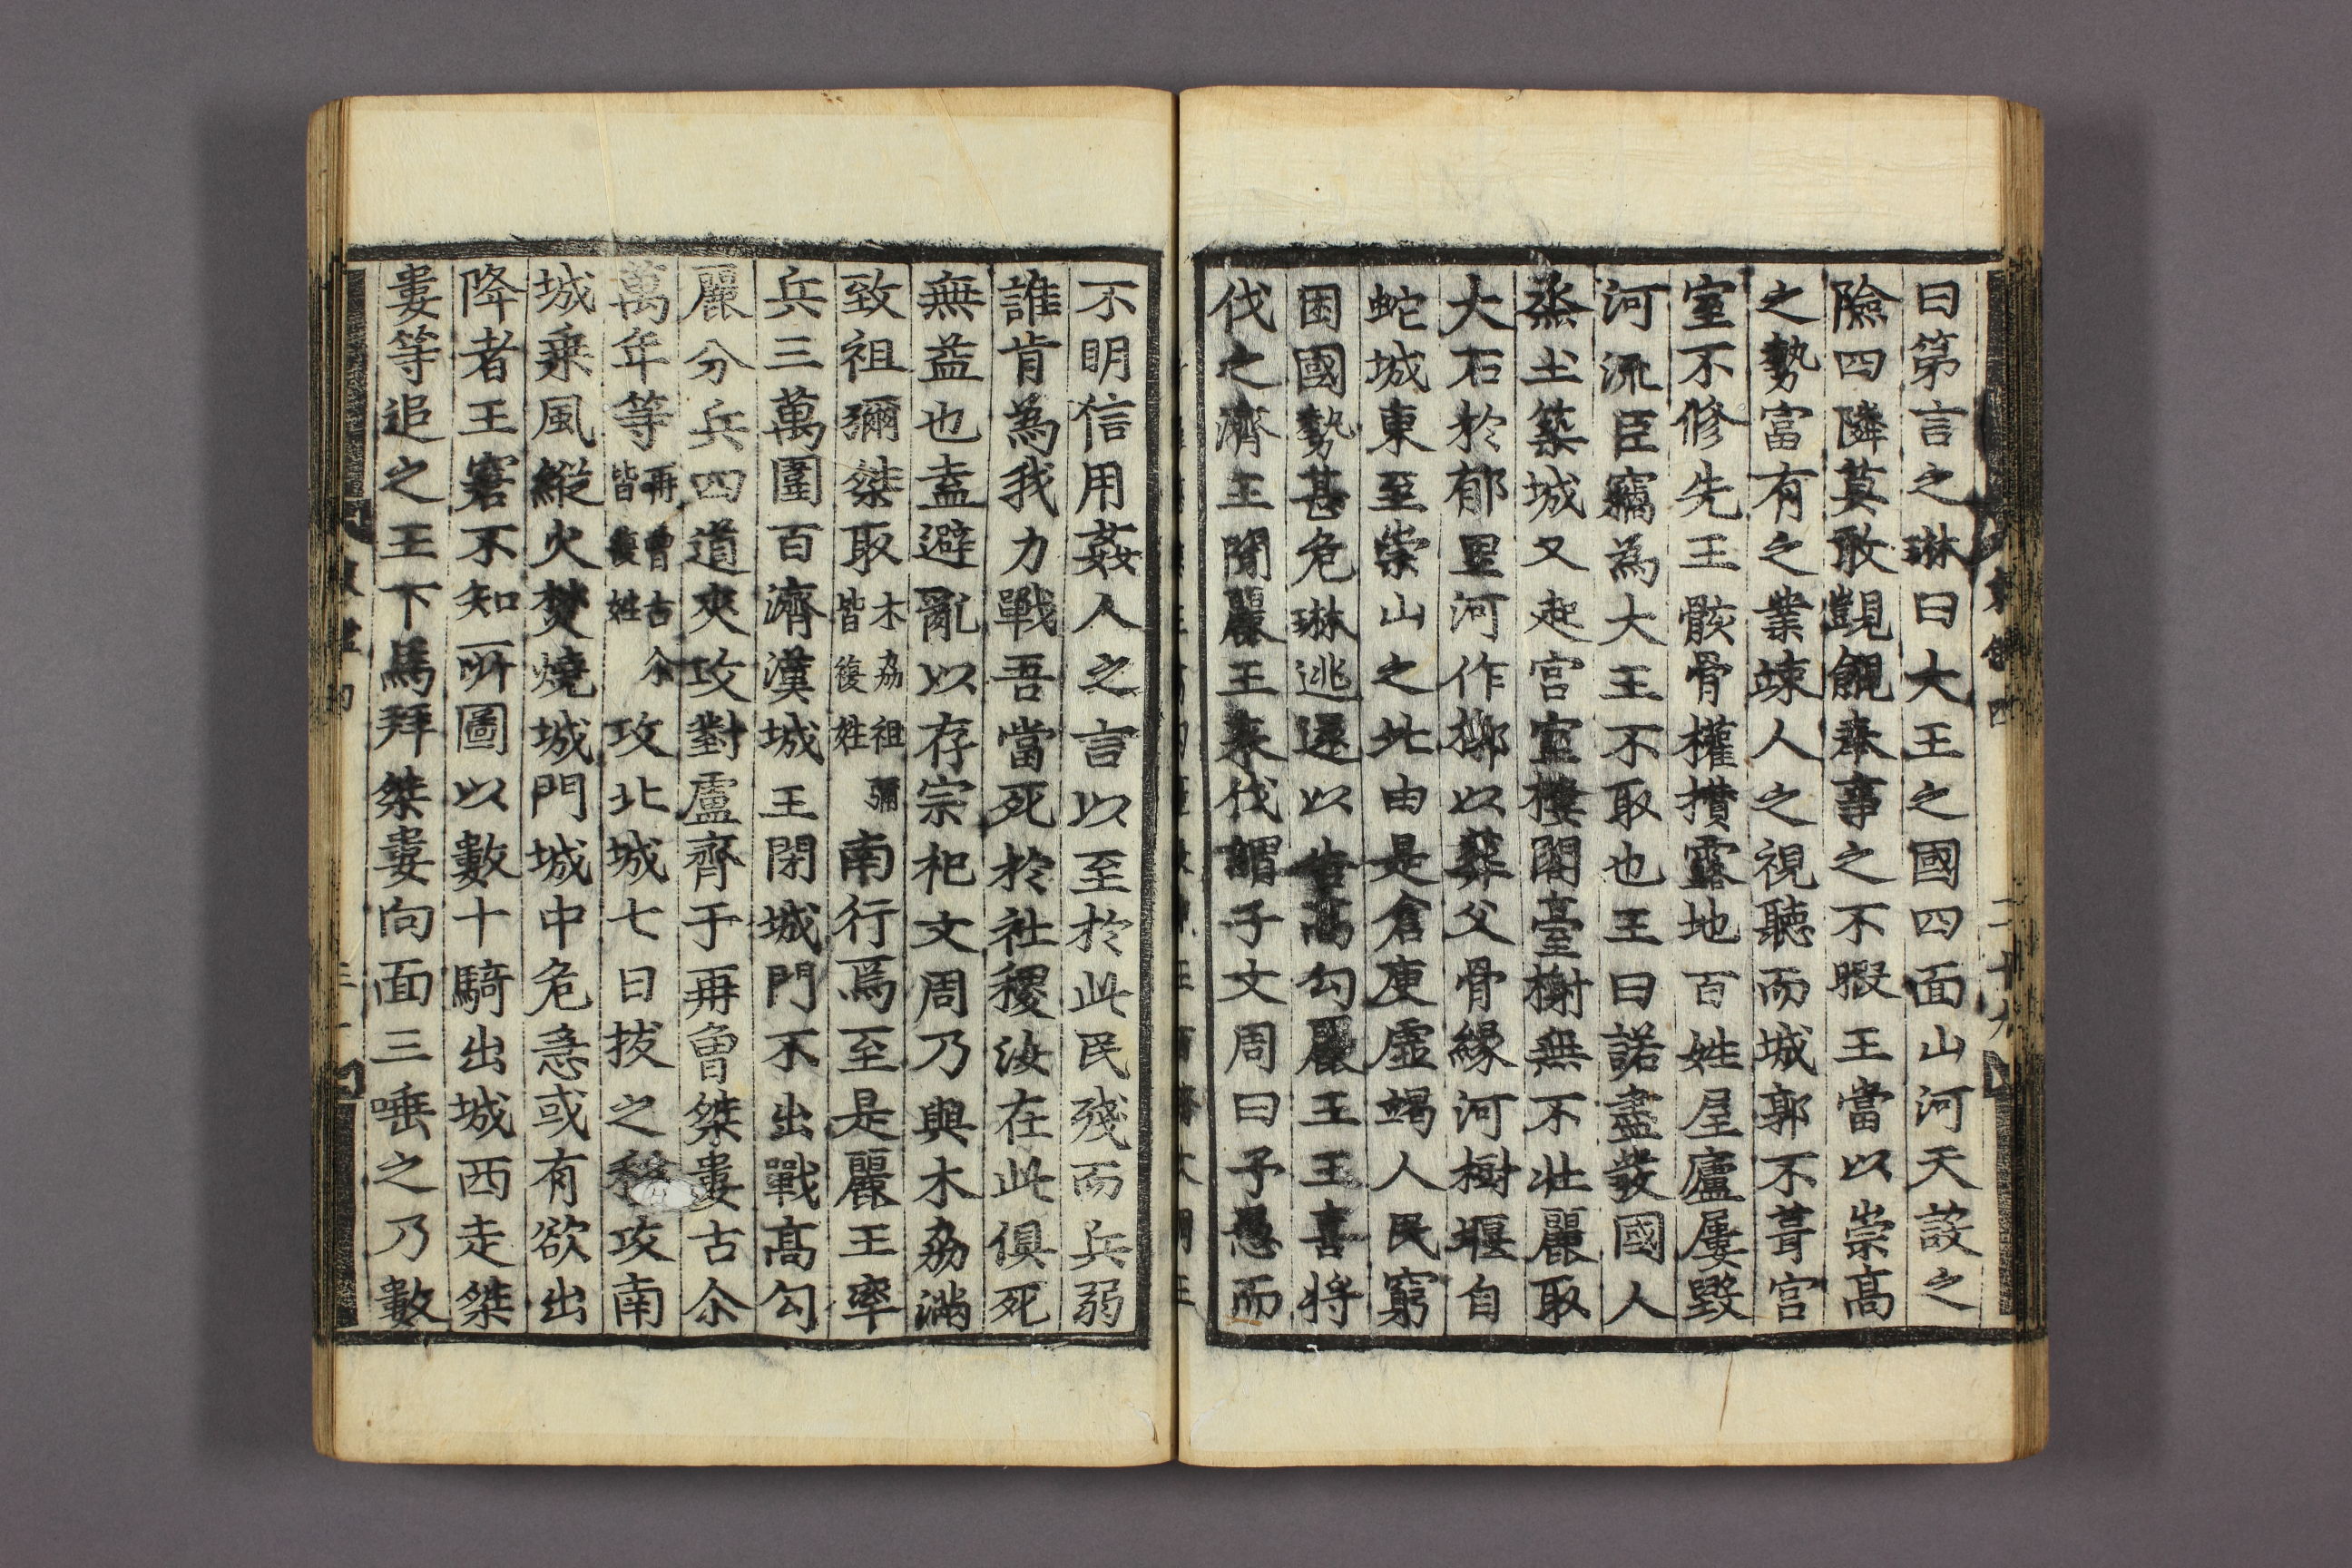 曰第言之琳曰大王之國四面山河天設之
險四隣莫敢覬覦奉事之不暇王當以崇高
之勢富有之業竦人之視聽而城郭不葺宮
室不修先王骸骨權攅露地百姓屋廬屢毀
河流臣竊為大王不取也王曰諾盡發國人
烝土築城又起宮室樓閣臺榭無不壯麗取
大石於郁里河作槨以葬父骨緣河樹堰自
蛇城東至崇山之北由是倉庾虛竭人民窮
困國勢甚危琳逃還以告高勾麗王王喜將
伐之濟王聞麗王來伐謂子文周曰予愚而
不明信用姦人之言以至於此民殘而兵弱
誰肯為我力戰吾當死於社稷汝在此俱死
無益也盍避亂以存宗祀文周乃與木刕滿
致祖彌桀取木刕祖彌皆複姓南行焉至是麗王率
兵三萬圍百濟漢城王閉城門不出戰高勾
麗分兵四道夾攻對盧齊于再曾桀婁古尒
萬年等再曾古尒皆複姓攻北城七日拔之移攻南
城乘風縱火焚燒城門城中危急或有欲出
降者王窘不知所圖以數十騎出城西走桀
婁等追之王下馬拜桀婁向面三唾之乃數